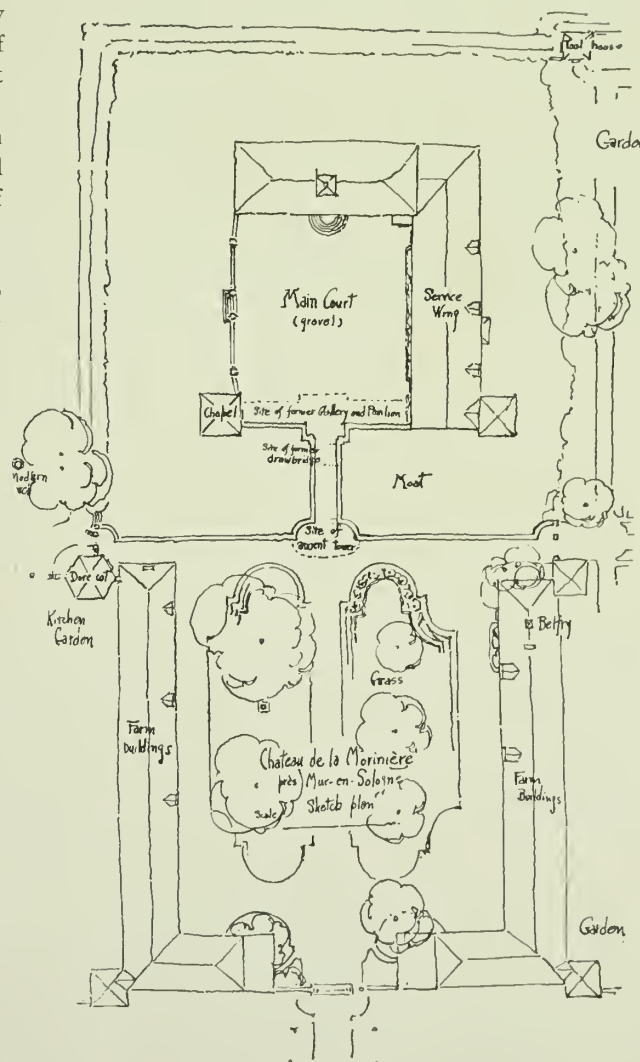 house
Garde
Main Court
(gravel)
Service
Wing
Chapel
Site of former Gallery and Pavilion
Site of former
drawbridge
Moat
Modern
Site of
ancient tower
Dove cot
Kitchen
Garden
Belfry
Grass
Farm
Buildings
Chateau de la Morinière
près Mur-en-Sologne
Sketch plan
Scale
Farm
Buildings
Garden